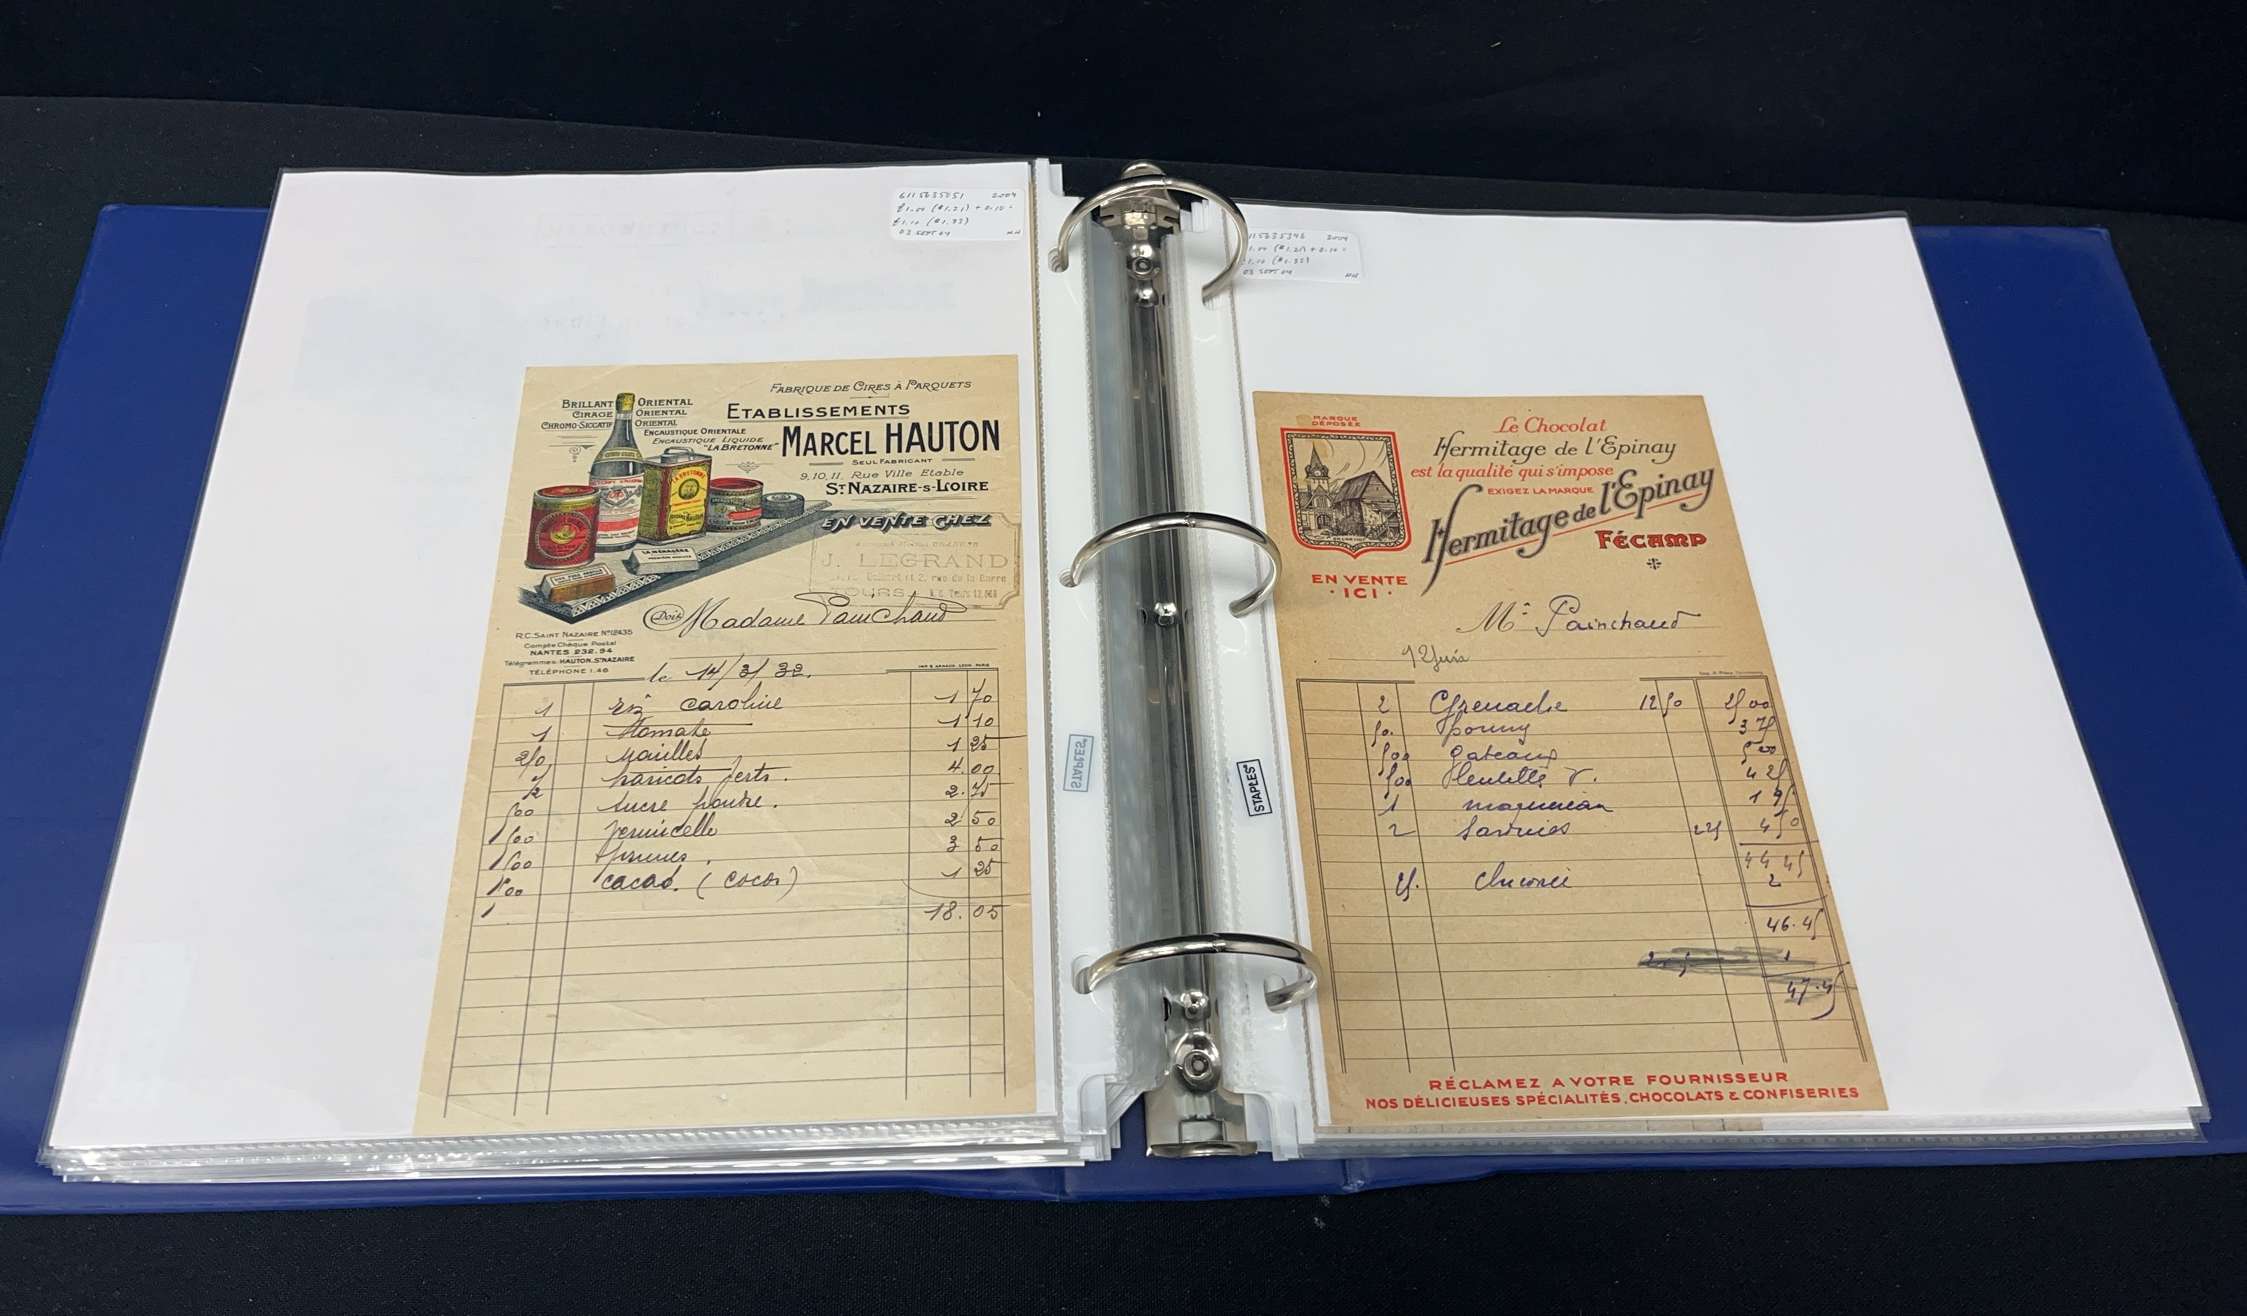 6115635051 2004
03 SEPT 04 HH
FABRIQUE DE CIRES À PARQUETS
BRILLANT ORIENTAL
CIRAGE ORIENTAL
CHROMO-SICCATIF ORIENTAL
ENCAUSTIQUE ORIENTALE
ENCAUSTIQUE LIQUIDE
"LA BRETONNE"
ETABLISSEMENTS
MARCEL HAUTON
SEUL FABRICANT
9, 10, 11, Rue Ville Etable
ST NAZAIRE-S-LOIRE
EN VENTE CHEZ
J. LEGRAND
2, rue de la Barre
TOURS
LA MÉNAGÈRE
Doit Madame Painchaud
R.C. SAINT NAZAIRE No 12435
Compte Chèque Postal
NANTES 232.94
Télégrammes: HAUTON. ST NAZAIRE
TÉLÉPHONE 1.46
le 14/3/32.
1 riz caroline 1 70
1 tomate 1 10
nouilles 1 25
haricots verts. 4.00
sucre poudre. 2.75
vermicelle 2 50
prunes. 3 50
cacao. (cocos) 1 25
18.05
STAPLES
STAPLES
2004
03 SEPT 04 HH
MARQUE DÉPOSÉE
Le Chocolat
Hermitage de l'Epinay
est la qualité qui s'impose
EXIGEZ LA MARQUE
Hermitage de l'Epinay
FÉCAMP
EN VENTE
· ICI ·
Me Painchaud
12 Juin
2 Grenache 12 50 25 00
3 75
500 Gateaux 5 00
500 4 25
1 1 95
2 Sardines 225 4 50
44 45
Chicorée 2
46.45
47.45
RÉCLAMEZ A VOTRE FOURNISSEUR
NOS DÉLICIEUSES SPÉCIALITÉS, CHOCOLATS & CONFISERIES